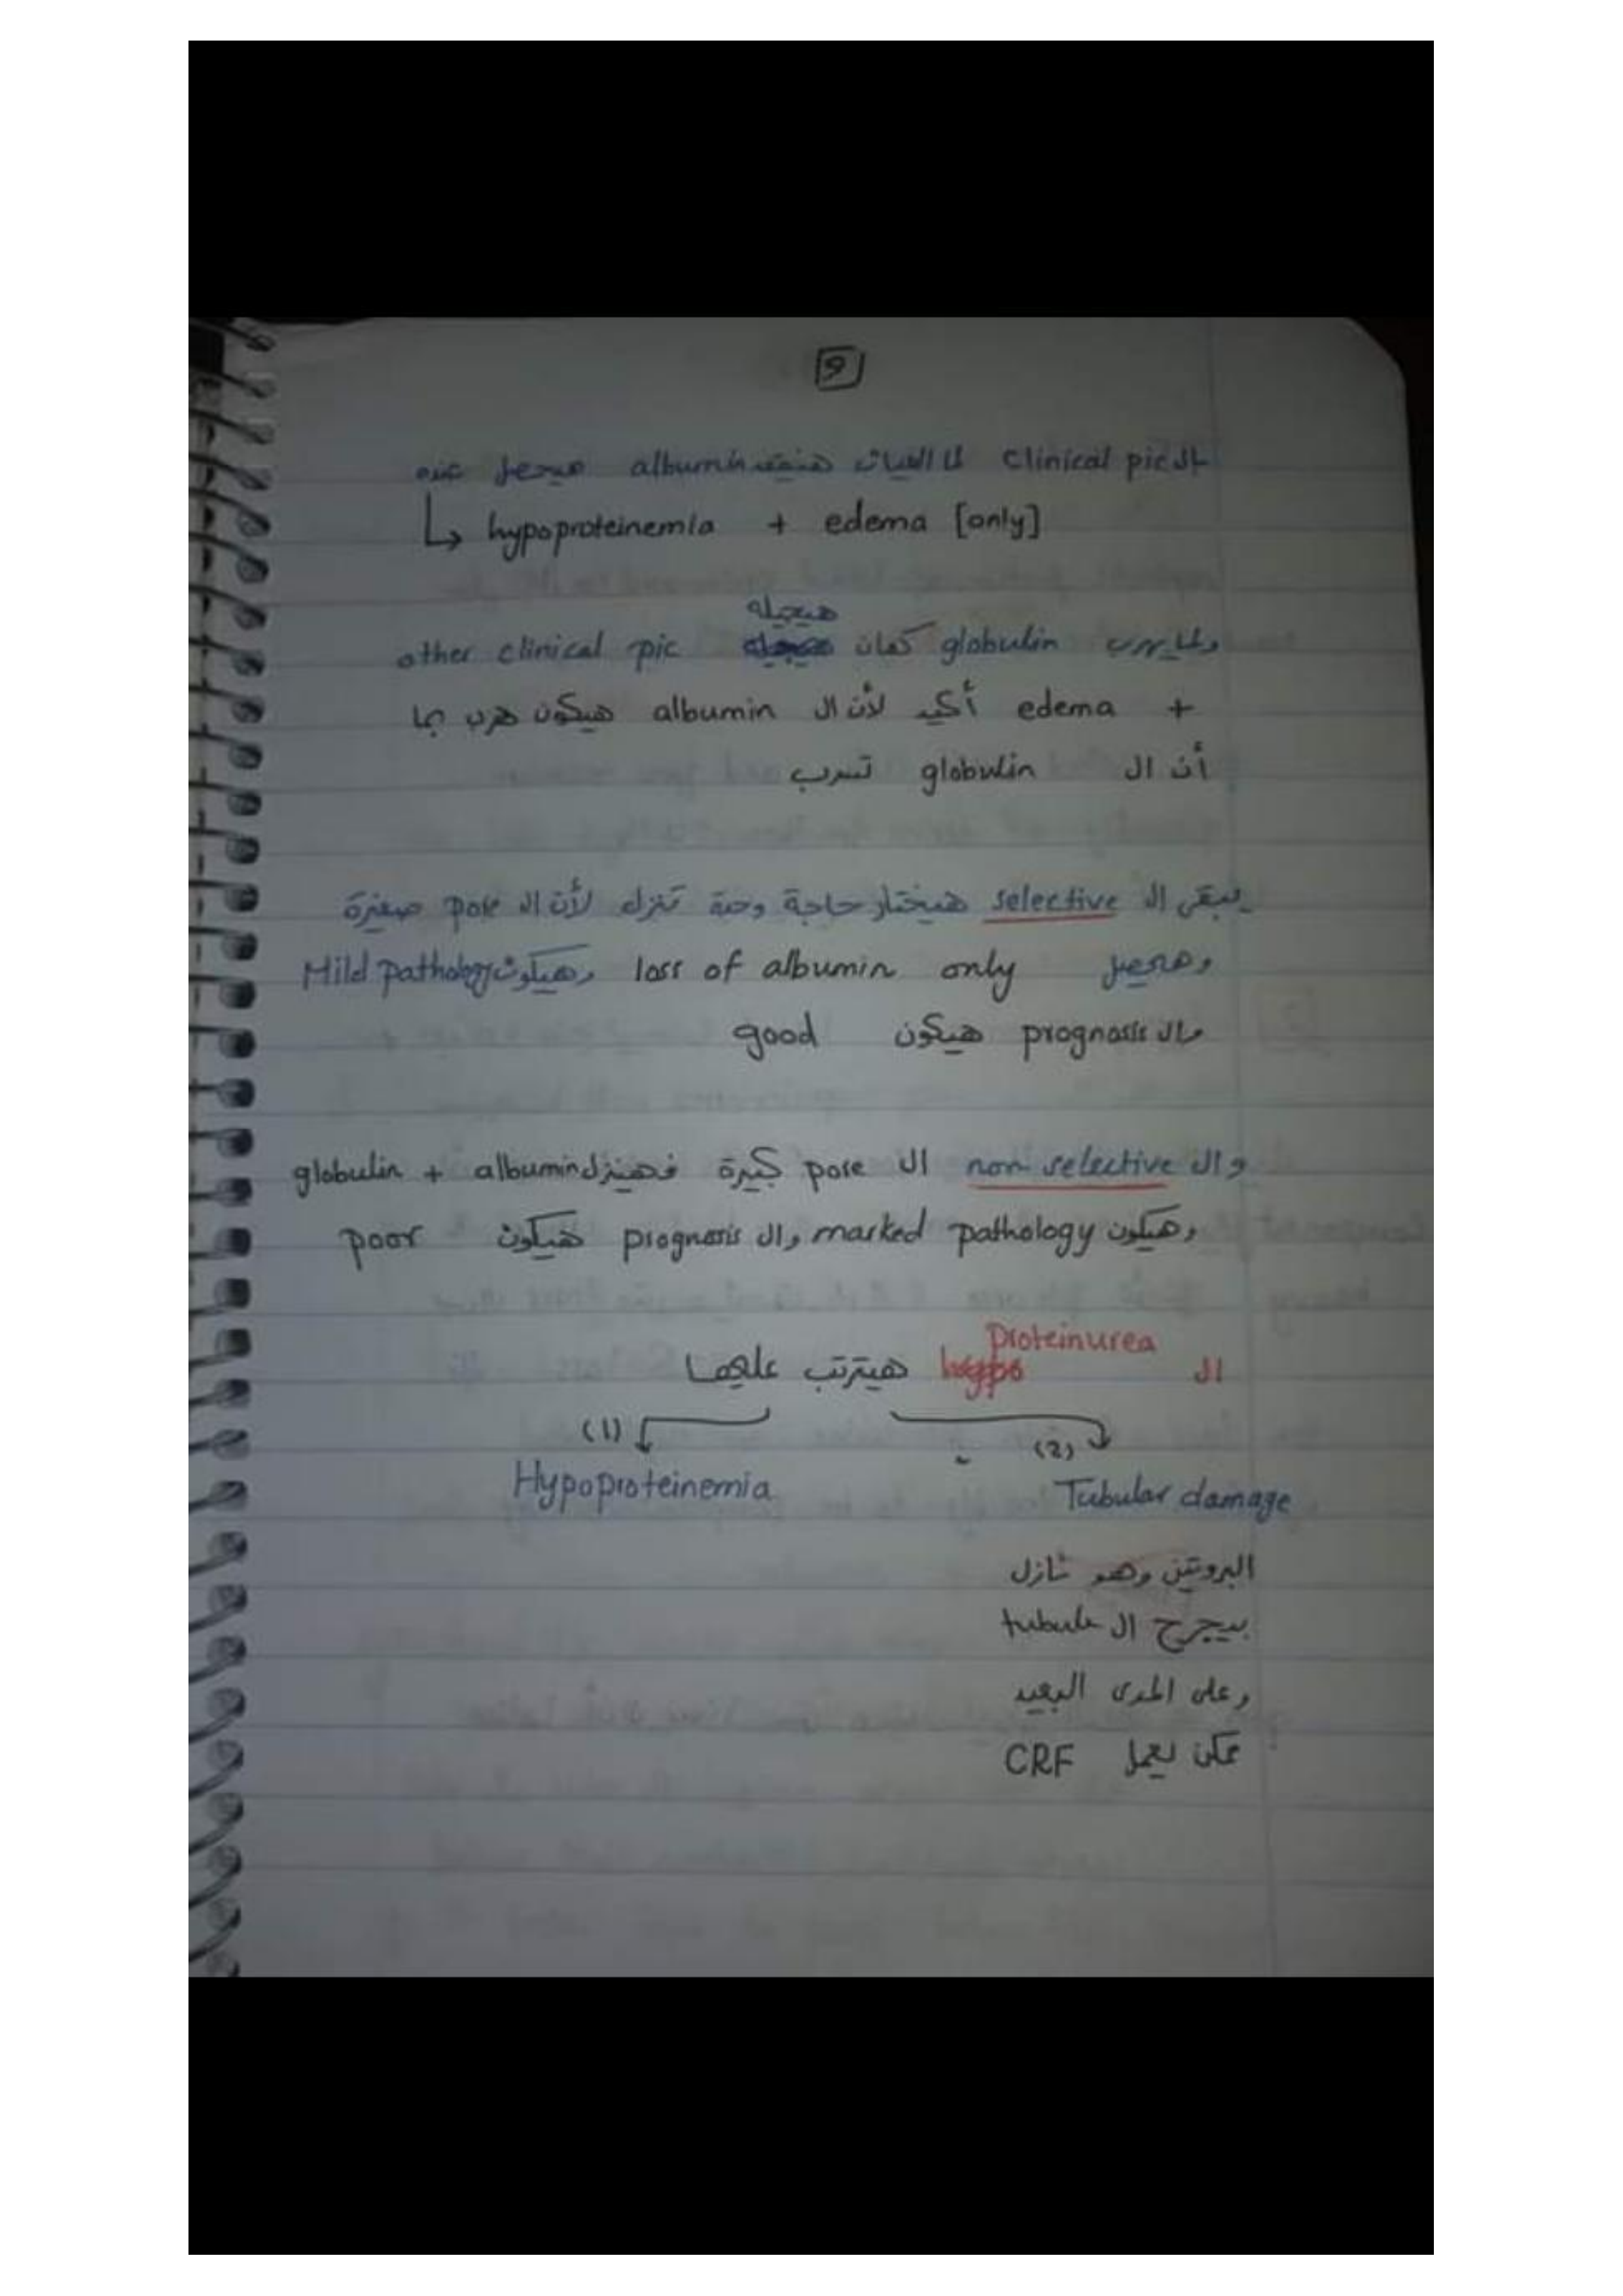 9
ال clinical pic لما العيان هيفقد albumin هيحصل عنده
↳ hypoproteinemia + edema [only]
هيجيله
ولما يهرب globulin كمان other clinical pic
+ edema أكيد لأن ال albumin هيكون هرب بما
أن ال globulin تسرب
يبقى ال selective هيختار حاجة وحدة تنزل لأن ال pore صغيرة
وهيحصل loss of albumin only وهيكون Mild pathology
وال prognosis هيكون good
وال non selective ال pore كبيرة فهينزل albumin + globulin
وهيكون marked pathology وال prognosis هيكون poor
Proteinurea
ال هيترتب عليها
(1) (2)
Hypoproteinemia Tubular damage
البروتين وهو نازل
بيجرح ال tubule
وعلى المدى البعيد
ممكن يعمل CRF